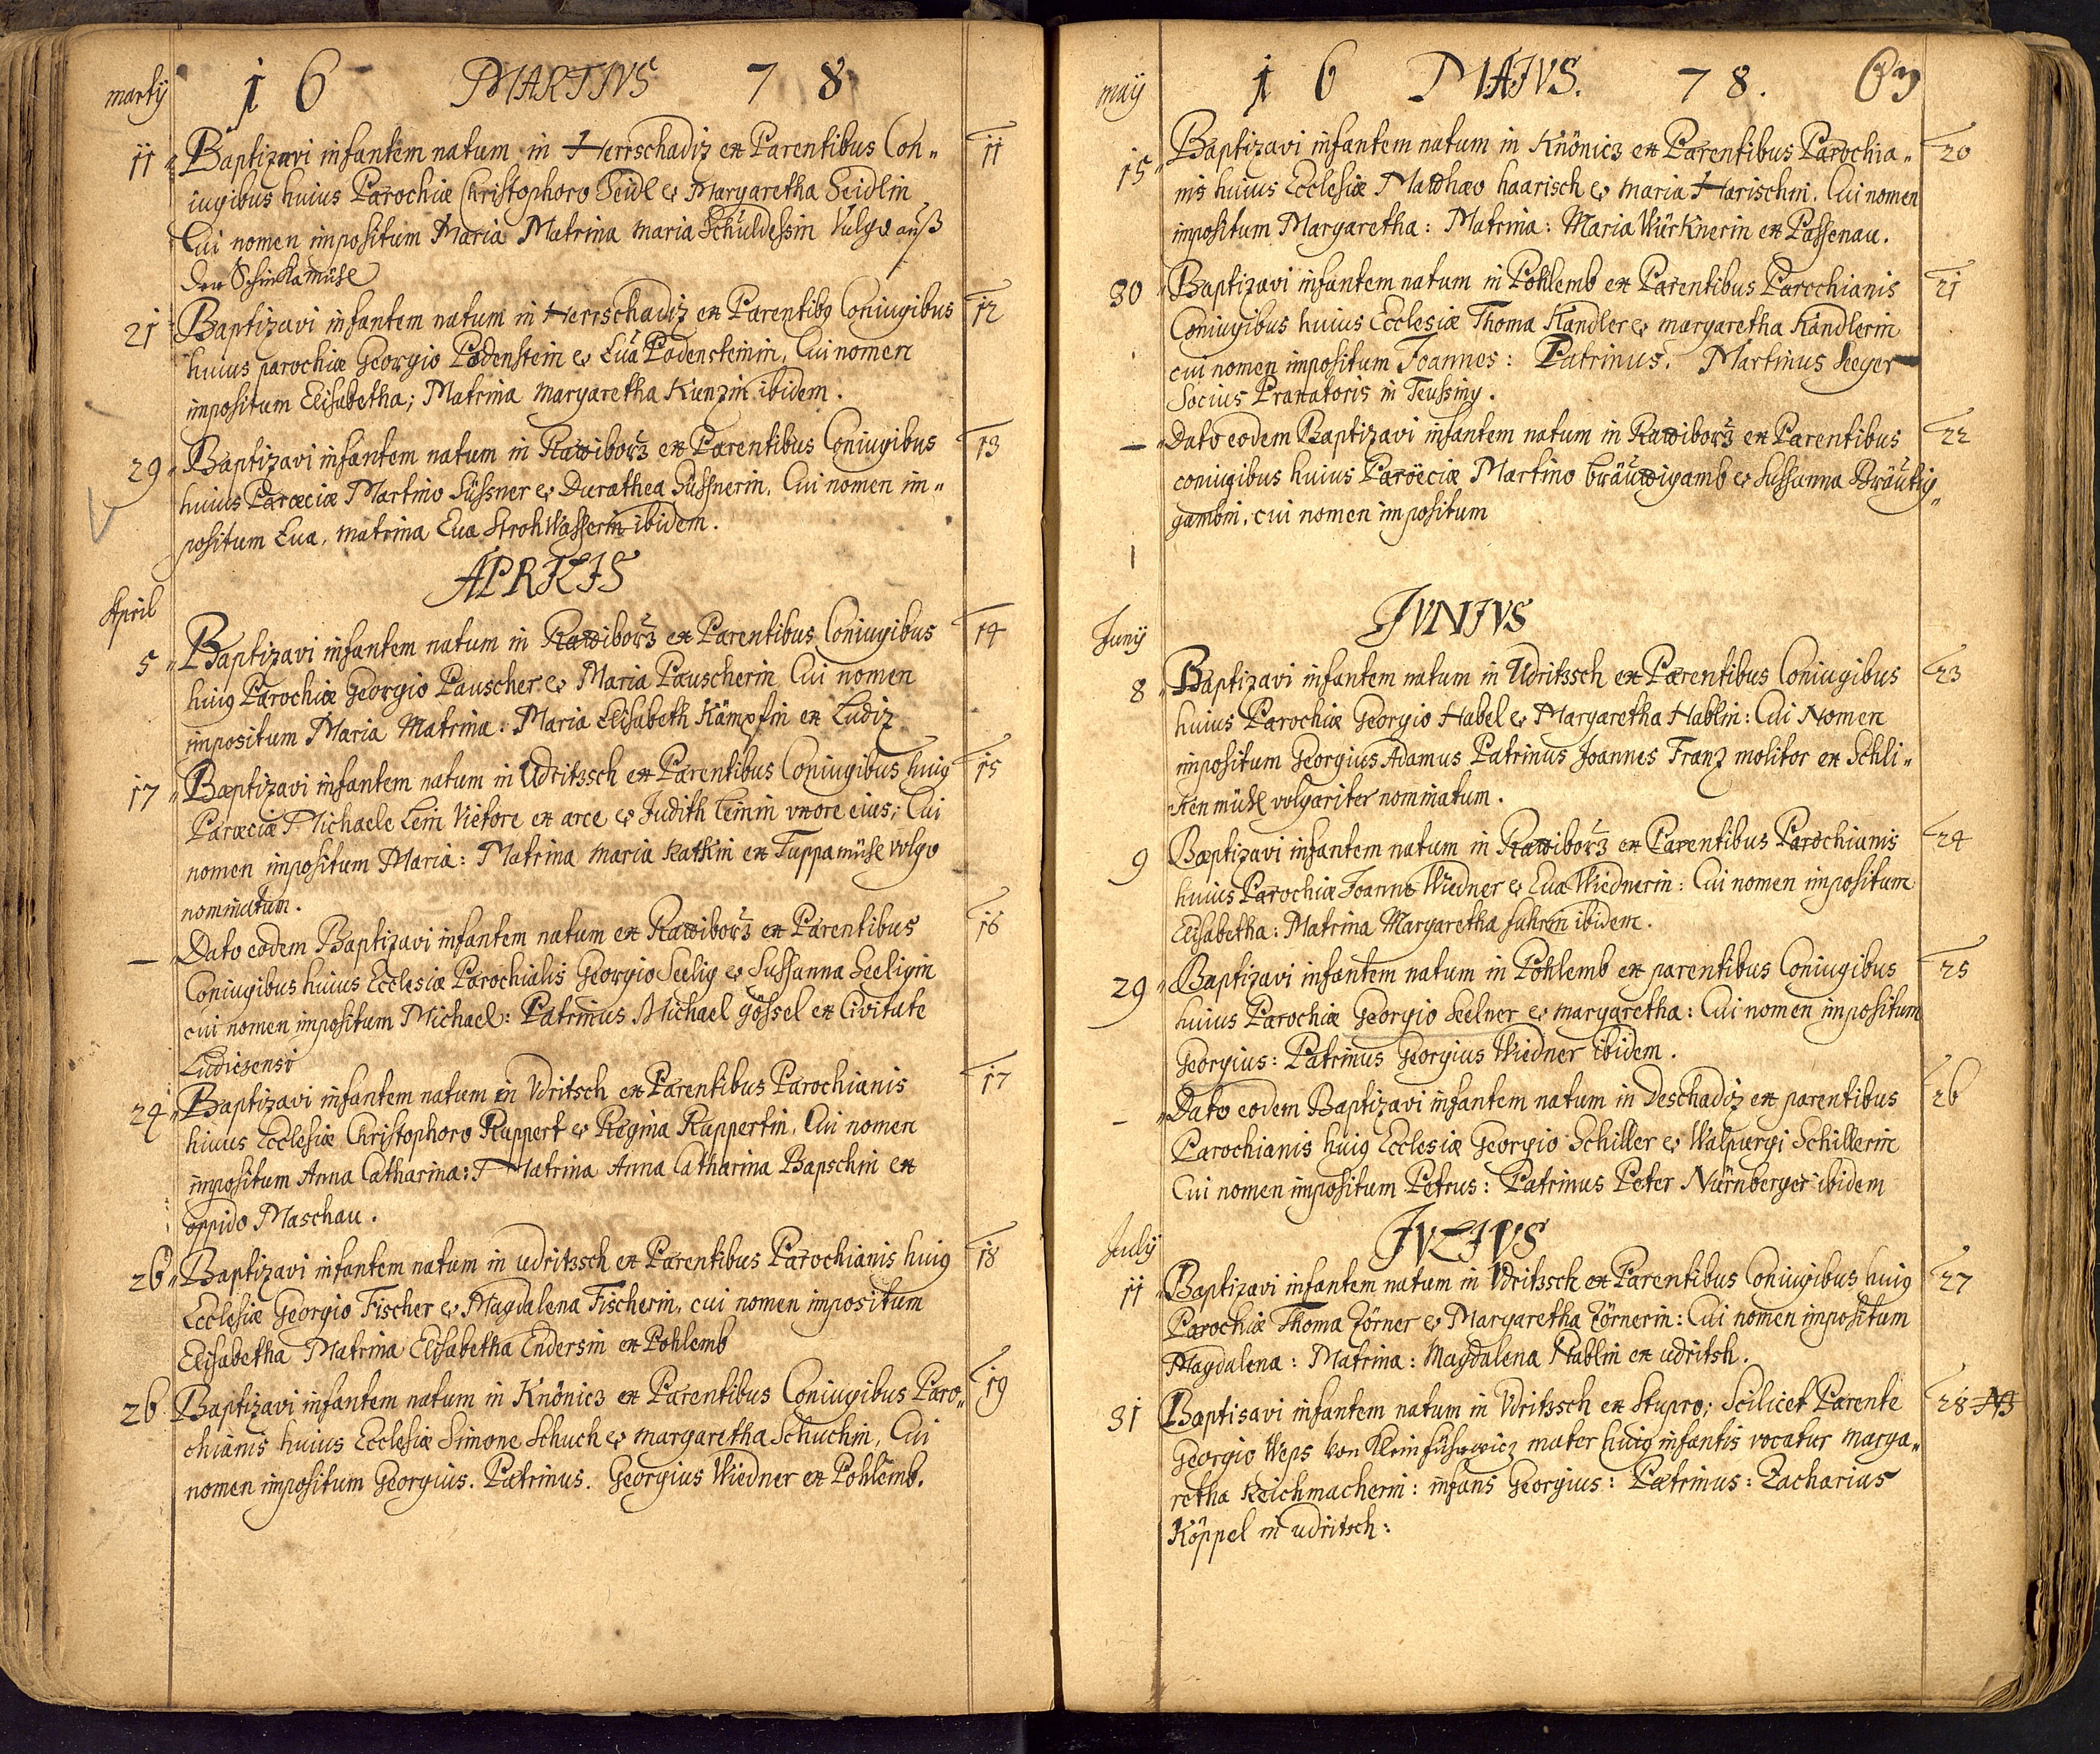 martij 16 MARTIVS 78
11 Baptizavi infantem natum in Herrschadiz ex Parentibus Con„ 11
iugibus huius Parochiæ Christophoro Seidl & Margaretha Seidlin
Cui nomen impositum Maria Matrina Maria Schuldessin Vulgo auß
der Schinkamühl
21 Baptizavi infantem natum in Herrschadiz ex Parentibꝯ Coniugibus 12
huius parochiæ Georgio Padenstein & Eua Padensteinin, Cui nomen
impositum Elisabetha; Matrina Margaretha Kunzin ibidem.
29 Baptizavi infantem natum in Rattiborz ex Parentibus Coniugibus 13
huius Parœciæ Martino Süssner & Durathea Süssnerin, Cui nomen im„
positum Eua, matrina Eua StrohWasserin ibidem.
APRILIS
April
5 Baptizavi infantem natum in Rattiborz ex Parentibus Coniugibus 14
huiꝯ Parochiæ Georgio Pauscher & Maria Pauscherin Cui nomen
impositum Maria Matrina: Maria Elisabeth Kämpfin ex Ludiz
17 Baptizavi infantem natum in Udritzsch ex Parentibus Coniugibus huiꝯ 15
Parœciæ Michaele Lein Vietore ex arce & Judith Leinin vxore eius; Cui
nomen impositum Maria: Matrina Maria Rathin ex Tuppamühl volgo
nominatum.
— Dato eodem Baptizavi infantem natum ex Rattiborz ex Parentibus 16
Coniugibus huius Ecclesiæ Parochialis Georgio Seelig & Sussanna Seeligin
cui nomen impositum Michael: Patrinus Michael Gössel ex Civitate
Ludicensi
24 Baptizavi infantem natum in Vdritsch ex Parentibus Parochianis 17
huius Ecclesiæ Christophoro Ruppert & Regina Ruppertin, Cui nomen
impositum Anna Catharina: Matrina Anna Catharina Bapschin ex
oppido Maschau.
26 Baptizavi infantem natum in udritzsch ex Parentibus Parochianis huiꝯ 18
Ecclesiæ Georgio Fischer & Magdalena Fischerin, cui nomen impositum
Elisabetha Matrina Elisabetha Endersin ex Pohlemb
26 Baptizavi infantem natum in Knönicz ex Parentibus Coniugibus Paro„ 19
chianis huius Ecclesiæ Simone Schuch & margaretha Schuchin, Cui
nomen impositum Georgius. Patrinus. Georgius Wiedner ex Pohlemb.
maij 16 MAIVS. 78. 63
15 Baptizavi infantem natum in Knönicz ex Parentibus Parochia„ 20
nis huius Ecclesiæ Matthæo haarisch & maria Harischin. Cui nomen
impositum Margaretha: Matrina: Maria Würknerin ex Passenau.
30 Baptizavi infantem natum in Pohlemb ex Parentibus Parochianis 21
Coniugibus huius Ecclesiæ Thoma Kandler & margaretha Kandlerin
cui nomen impositum Joannes: Patrinus. Martinus Seeger
Socius Pranatoris in Teussing.
— Dato eodem Baptizavi infantem natum in Rattiborz ex Parentibus 22
coniugibus huius Parœciæ Martino bräuttigamb & Sussanna Bräutig„
gambin, cui nomen impositum
JVNIVS
Junij
8 Baptizavi infantem natum in Udritzsch ex Parentibus Coniugibus 23
huius Parochiæ Georgio Habel & Margaretha Hablin: Cui Nomen
impositum Georgius Adamus Patrinus Joannes Franz molitor ex Schli„
sten mühl volgariter nominatum.
9 Baptizavi infantem natum in Rattiborz ex Parentibus Parochianis 24
huius Parochiæ Joanne Wiedner & Eua Wiednerin: Cui nomen impositum
Elisabetha: Matrina Margaretha fuhrin ibidem.
29 Baptizavi infantem natum in Pohlemb ex parentibus Coniugibus 25
huius Parochiæ Georgio Seelner & margaretha: Cui nomen impositum
Georgius: Patrinus Georgius Wiedner ibidem.
— Dato eodem Baptizavi infantem natum in Deschadiz ex parentibus 26
Parochianis huiꝯ Ecclesiæ Georgio Schiller & Walpurgi Schillerin
Cui nomen impositum Petrus: Patrinus Peter Nürnberger ibidem
JVLIVS
July
11 Baptizavi infantem natum in Vdritzsch ex Parentibus Coniugibus huiꝯ 27
Parochiæ Thoma Zörner & Margaretha Zörnerin: Cui nomen impositum
Magdalena: Matrina: Magdalena Stablin ex udritsh.
31 Baptisavi infantem natum in Vdritzsch ex stupro; Scilicet Parente 28 NB
Georgio Weps von Kleinfürwicz mater huiꝯ infantis vocatur marga„
retha Reichmacherin: infans Georgius: Patrinus: Zacharius
Köppel in udritsch: